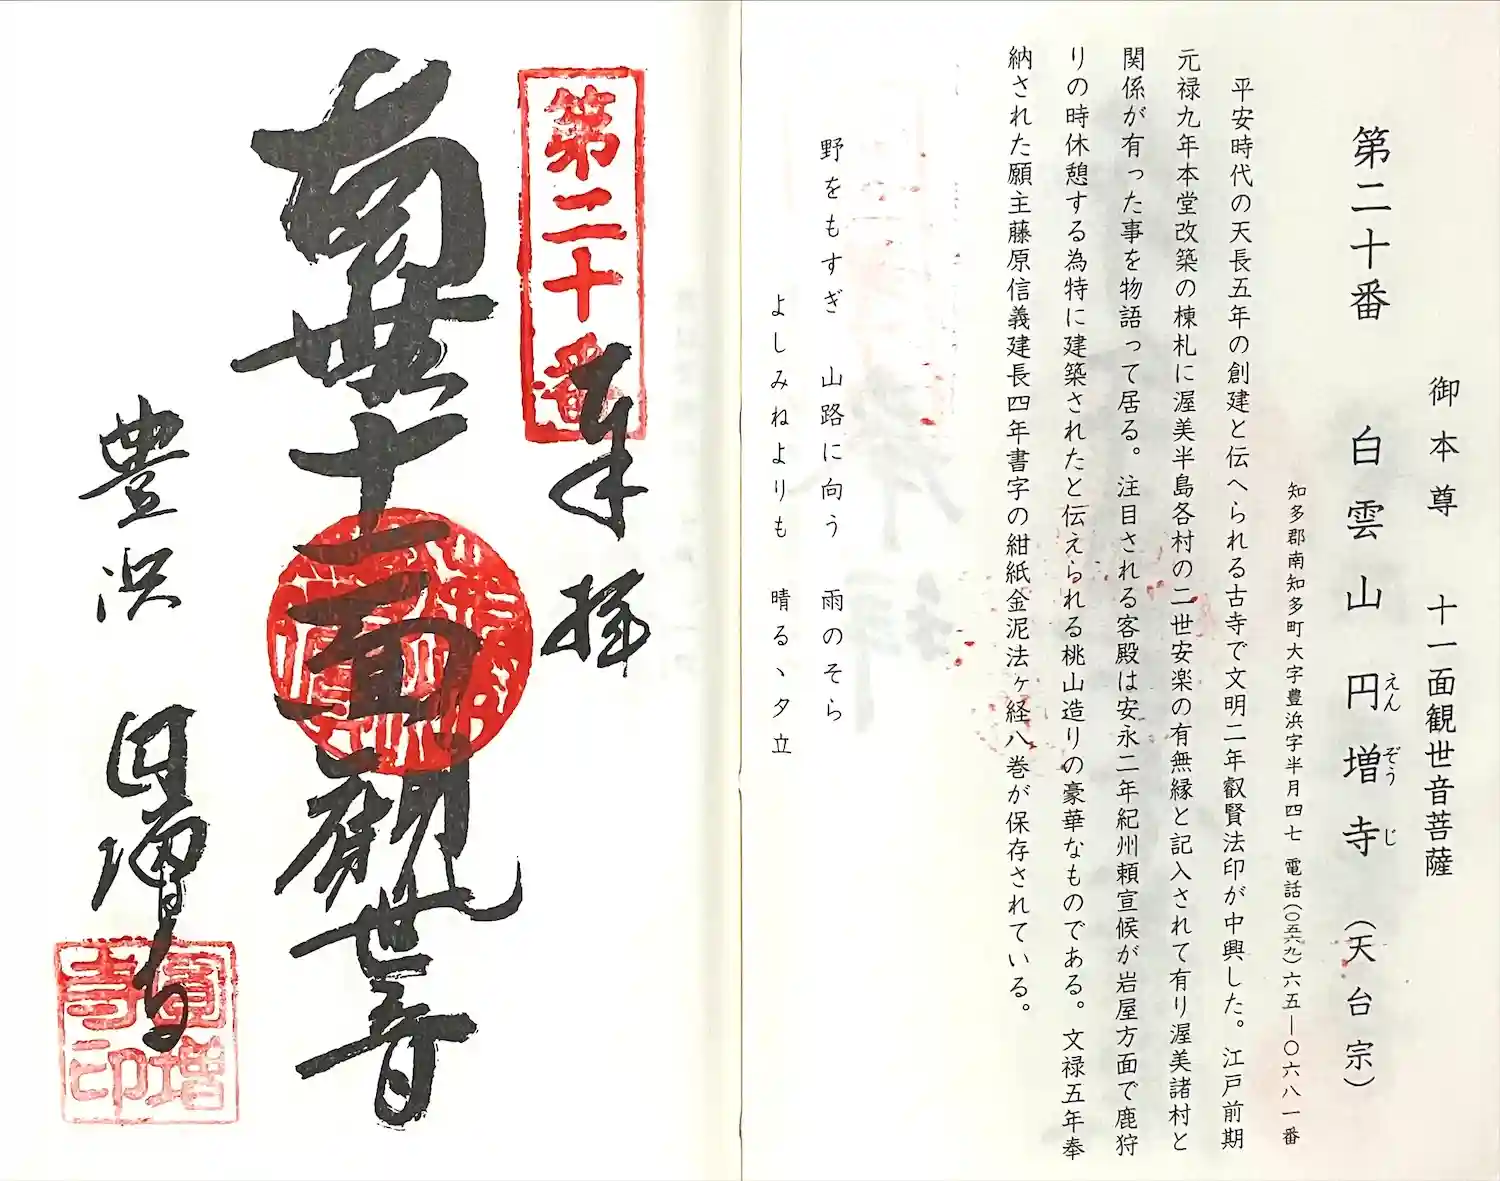 御本尊 十一面観世音菩薩
第二十番 白雲山 円増寺 (天台宗)
えん ぞう じ
知多郡南知多町大字豊浜字半月四七 電話(〇五六九)六五―〇六八一番
平安時代の天長五年の創建と伝へられる古寺で文明二年叡賢法印が中興した。江戸前期
元禄九年本堂改築の棟札に渥美半島各村の二世安楽の有無縁と記入されて有り渥美諸村と
関係が有った事を物語って居る。注目される客殿は安永二年紀州頼宣候が岩屋方面で鹿狩
りの時休憩する為特に建築されたと伝えられる桃山造りの豪華なものである。文禄五年奉
納された願主藤原信義建長四年書字の紺紙金泥法ヶ経八巻が保存されている。
野をもすぎ 山路に向う 雨のそら
よしみねよりも 晴るゝ夕立
第二十番
奉拝
南無十一面観世音
豊浜 円増寺
圓増寺印